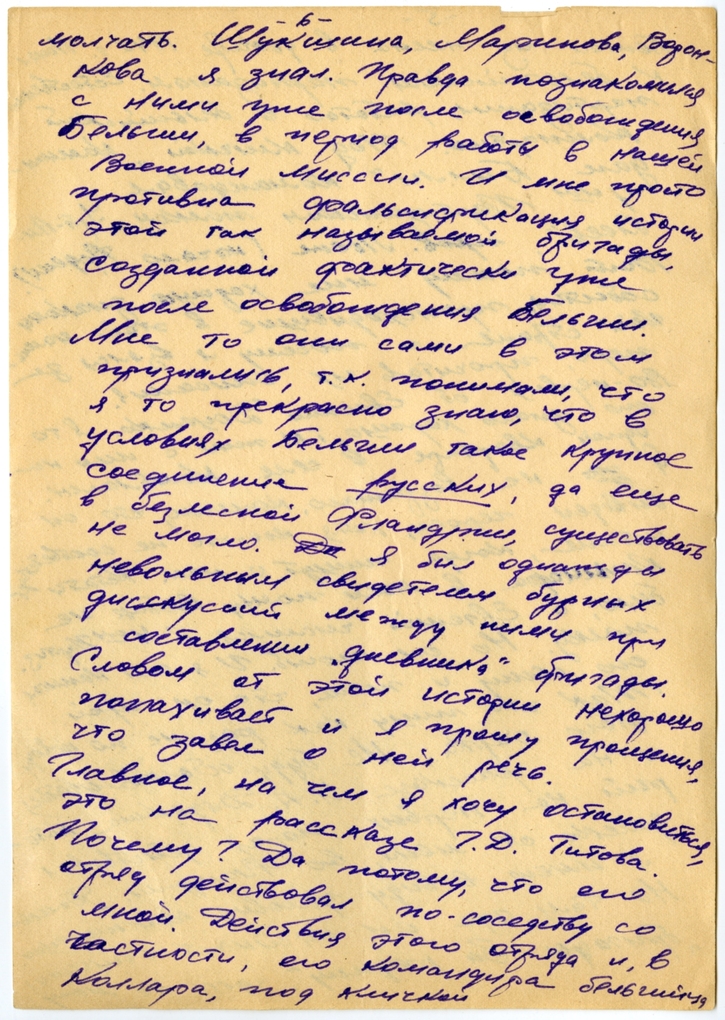 -6-
молчать. Шукшина, Маринова, Ворон-
кова я знал. Правда познакомился
с ними уже после освобождения
Бельгии, в период работы в нашей
Военной миссии. И мне просто
противна фальсификация истории
этой так называемой бригады,
созданной фактически уже
после освобождения Бельгии.
Мне то они сами в этом
признались, т.к. понимали, что
я то прекрасно знаю, что в
условиях Бельгии такое крупное
соединение русских, да еще
в безлесной Фландрии, существовать
не могло. Да Я был однажды
невольным свидетелем бурных
дискуссий между ними при
составлении „дневника" бригады.
Словом от этой истории нехорошо
попахивает и я прошу прощения,
что завел о ней речь.
Главное, на чем я хочу остановиться,
это на рассказе Г.Д. Титова.
Почему? Да потому, что его
отряд действовал по-соседству со
мной. Действия этого отряда и, в
частности, его командира бельгийца
Коллара, под кличкой